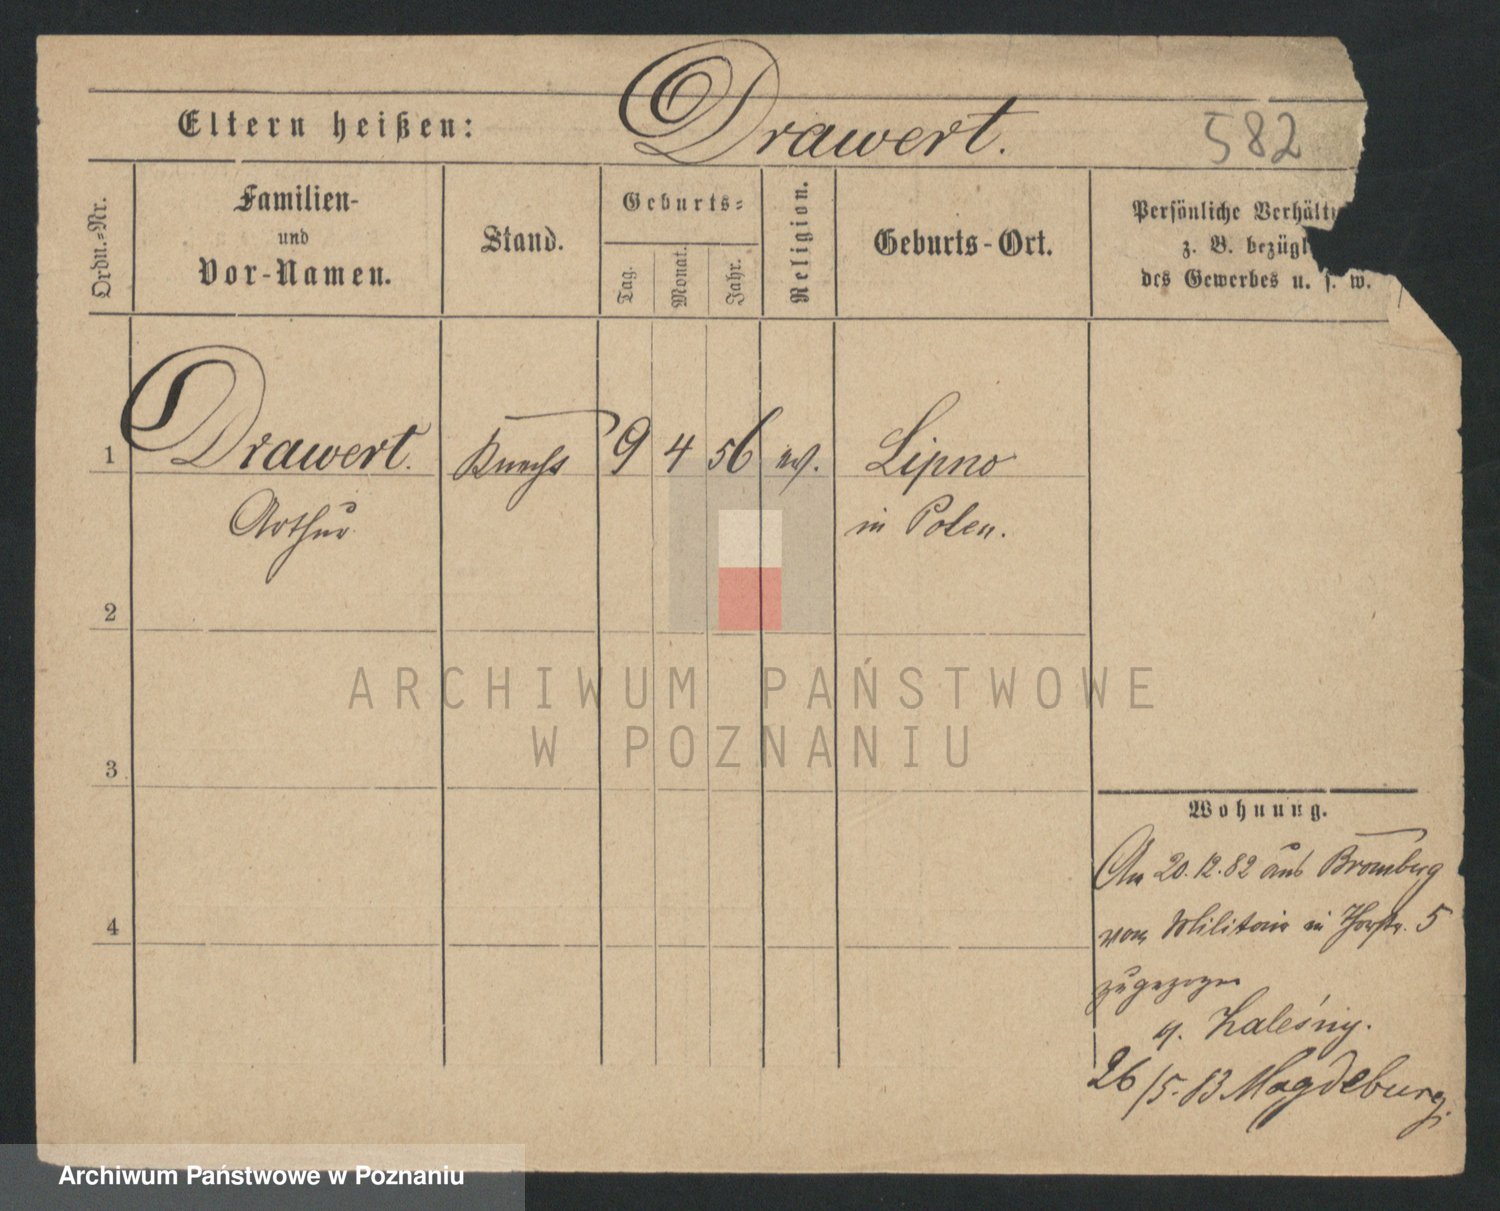 Eltern heißen: Drawert. 582
Ordn.-Nr.
Familien-
und
Vor-Namen.
Stand.
Geburts-
Tag.
Monat.
Jahr.
Religion.
Geburts-Ort.
Persönliche Verhält
z. B. bezügl
des Gewerbes u. s. w.
1 Drawert. Knecht 9 4 56 ev. Lipno
Arthur in Polen.
2
3
4
Wohnung.
An 20.12.82 aus Bromberg
vom Militair in 5
zugezogen
Zaleśny.
26/5.83 Magdeburg.
ARCHIWUM PAŃSTWOWE
W POZNANIU
Archiwum Państwowe w Poznaniu